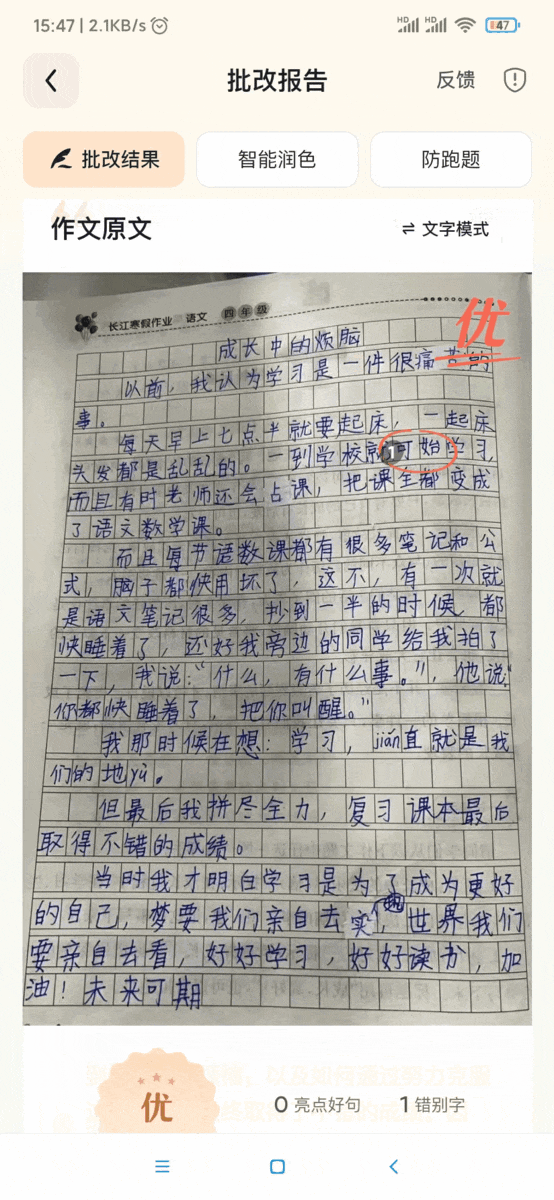 15:47 | 2.1KB/s
HD HD 47
批改报告
反馈
批改结果
智能润色
防跑题
作文原文
文字模式
长江寒假作业 语文 四年级
优
成长中的烦脑
以前，我认为学习是一件很痛苦的
事。
每天早上七点半就要起床，一起床
头发都是乱乱的。一到学校就1可始学习，
而且有时老师还会占课，把课全都变成
了语文数学课。
而且每节语数课都有很多笔记和公
式，脑子都快用坏了，这不，有一次就
是语文笔记很多，抄到一半的时候，都
快睡着了，还好我旁边的同学给我拍了
一下，我说：“什么，有什么事。”，他说：“
你都快睡着了，把你叫醒。”
我那时候在想：学习，jiǎn直就是我
们的地yù。
但最后我拼尽全力，复习课本最后
取得不错的成绩。
当时我才明白学习是为了成为更好
的自己，梦要我们亲自去实现，世界我们
要亲自去看，好好学习，好好读书，加
油！未来可期
优
0 亮点好句
1 错别字